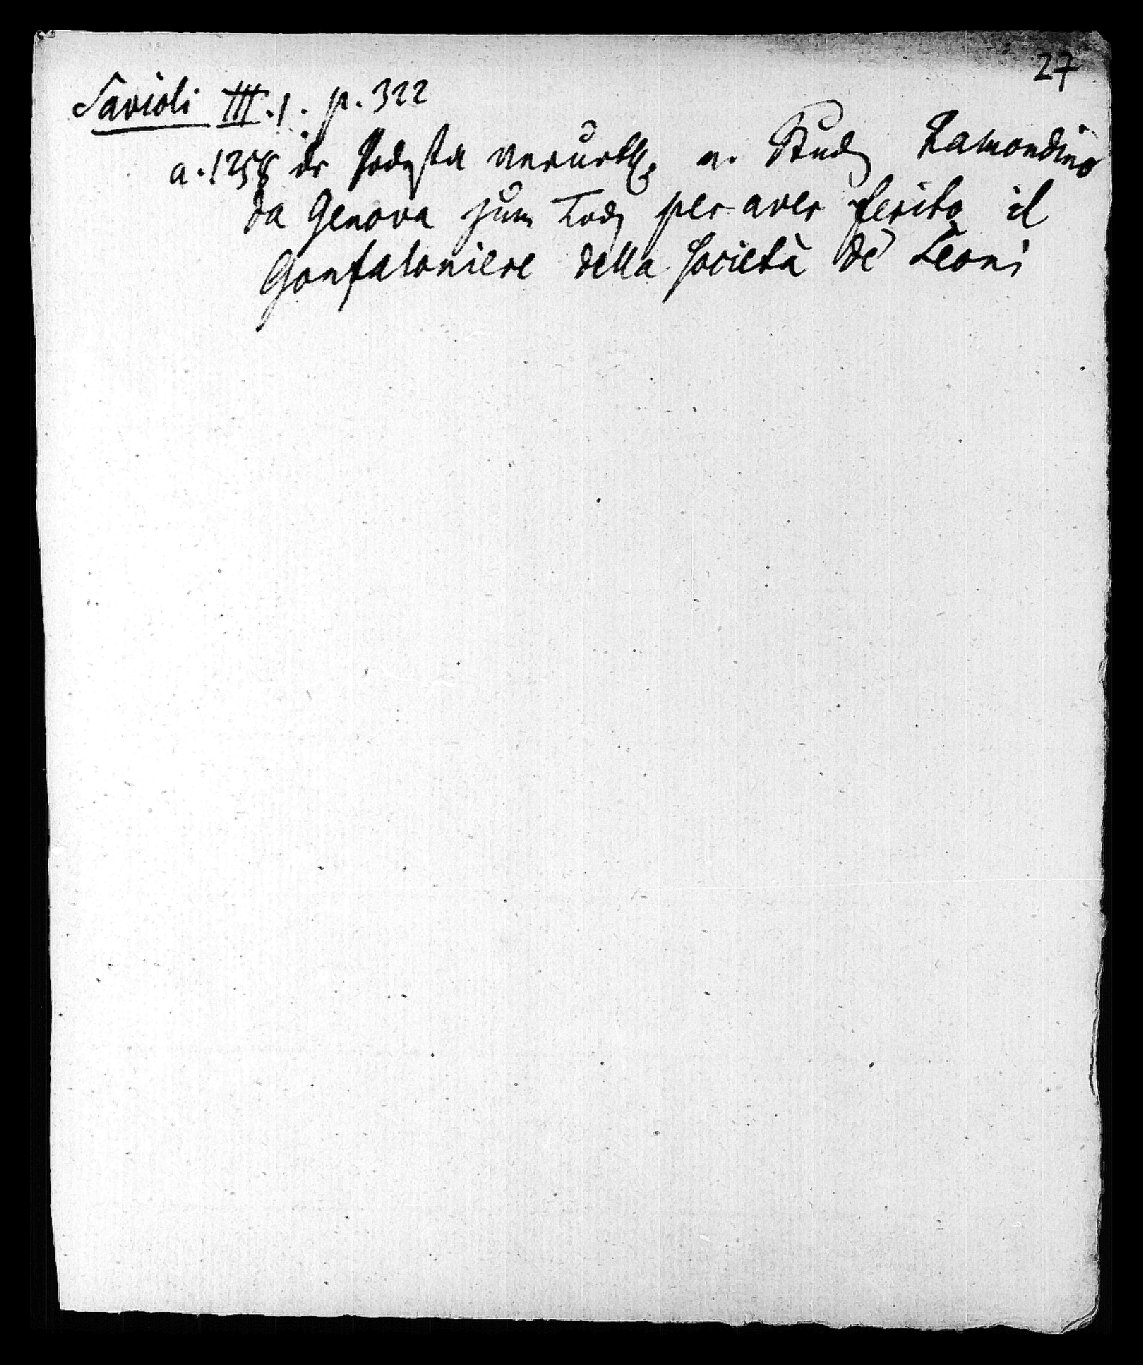 27
Savioli III. 1. p. 322
a. 1258 dr Podesta verurth. e. Stud. Lamondino
da Genova zum Tode per aver ferito il
Gonfaloniere della società de' Leoni